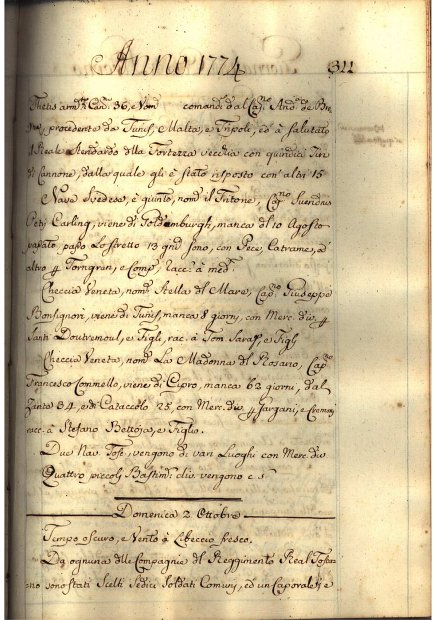 Anno 1774
311
Thetis arm: Can: 36, e Nom comand: dal Cap: And: de Bre
procedente da Tunis, Malta, e Tripoli, ed à salutato
il Reale Stendardo dlla Fortezza vecchia con quindici Tiri
di Cannone, dalla quale gli è stato risposto con altri 15
Nave Svedese, è quinto, nom: il Tritone, Cap:no Suenerus
Carling, viene di Goldemburgh, manca dl 10 Agosto
passato, passò Lo stretto 13 gni sono, con Pece, Catrame, ed
altro p Torngren, e Comp, racc: à med:
Checcia Veneta, nom: Stella dl Mare, Cap:no Giuseppe
Bonsignori, viene di Tunis, manca 8 giorni, con Merc: div: p
Santi Doutremoul, e Figli, rac: à Tom: Saraf, e Figli
Checcia Veneta, nom: La Madonna dl Rosario, Cap:no
Francesco Commello, viene di Cipro, manca 62 giorni, dal
Zante 34, e di Cataccolo 25, con Merc: div: p Jargani, e
racc: à Stefano Bettoja, e Figlio.
Due Nav: Tosc:, vengono di vari Luoghi con Merc: div:
Quattro piccoli Bastim: div: vengono c s
Domenica 2. Ottobre
Tempo oscuro, e Vento à Libeccio fresco.
Da ognuna dlle Compagnie dl Reggimento Real Tosca
no sono stati Scelti Sedici Soldati Comuni, ed un Caporale, e